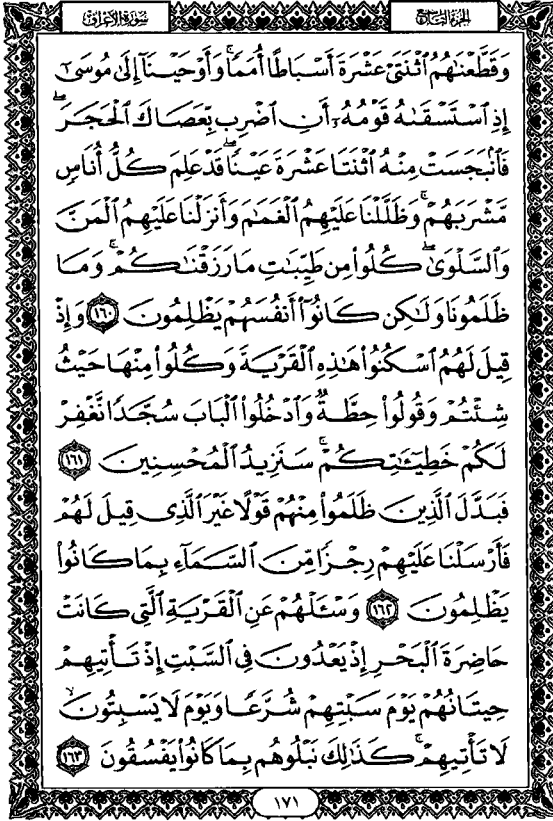 سورة الأعراف
الجزء التاسع
وَقَطَّعْنَٰهُمُ ٱثْنَتَىْ عَشْرَةَ أَسْبَاطًا أُمَمًا ۚ وَأَوْحَيْنَآ إِلَىٰ مُوسَىٰٓ
إِذِ ٱسْتَسْقَىٰهُ قَوْمُهُۥٓ أَنِ ٱضْرِب بِّعَصَاكَ ٱلْحَجَرَ ۖ
فَٱنۢبَجَسَتْ مِنْهُ ٱثْنَتَا عَشْرَةَ عَيْنًا ۖ قَدْ عَلِمَ كُلُّ أُنَاسٍ
مَّشْرَبَهُمْ ۚ وَظَلَّلْنَا عَلَيْهِمُ ٱلْغَمَٰمَ وَأَنزَلْنَا عَلَيْهِمُ ٱلْمَنَّ
وَٱلسَّلْوَىٰ ۖ كُلُوا۟ مِن طَيِّبَٰتِ مَا رَزَقْنَٰكُمْ ۚ وَمَا
ظَلَمُونَا وَلَٰكِن كَانُوٓا۟ أَنفُسَهُمْ يَظْلِمُونَ ١٦٠ وَإِذْ
قِيلَ لَهُمُ ٱسْكُنُوا۟ هَٰذِهِ ٱلْقَرْيَةَ وَكُلُوا۟ مِنْهَا حَيْثُ
شِئْتُمْ وَقُولُوا۟ حِطَّةٌ وَٱدْخُلُوا۟ ٱلْبَابَ سُجَّدًا نَّغْفِرْ
لَكُمْ خَطِيٓـَٰٔتِكُمْ ۚ سَنَزِيدُ ٱلْمُحْسِنِينَ ١٦١
فَبَدَّلَ ٱلَّذِينَ ظَلَمُوا۟ مِنْهُمْ قَوْلًا غَيْرَ ٱلَّذِى قِيلَ لَهُمْ
فَأَرْسَلْنَا عَلَيْهِمْ رِجْزًا مِّنَ ٱلسَّمَآءِ بِمَا كَانُوا۟
يَظْلِمُونَ ١٦٢ وَسْـَٔلْهُمْ عَنِ ٱلْقَرْيَةِ ٱلَّتِى كَانَتْ
حَاضِرَةَ ٱلْبَحْرِ إِذْ يَعْدُونَ فِى ٱلسَّبْتِ إِذْ تَأْتِيهِمْ
حِيتَانُهُمْ يَوْمَ سَبْتِهِمْ شُرَّعًا وَيَوْمَ لَا يَسْبِتُونَ ۙ
لَا تَأْتِيهِمْ ۚ كَذَٰلِكَ نَبْلُوهُم بِمَا كَانُوا۟ يَفْسُقُونَ ١٦٣
١٧١